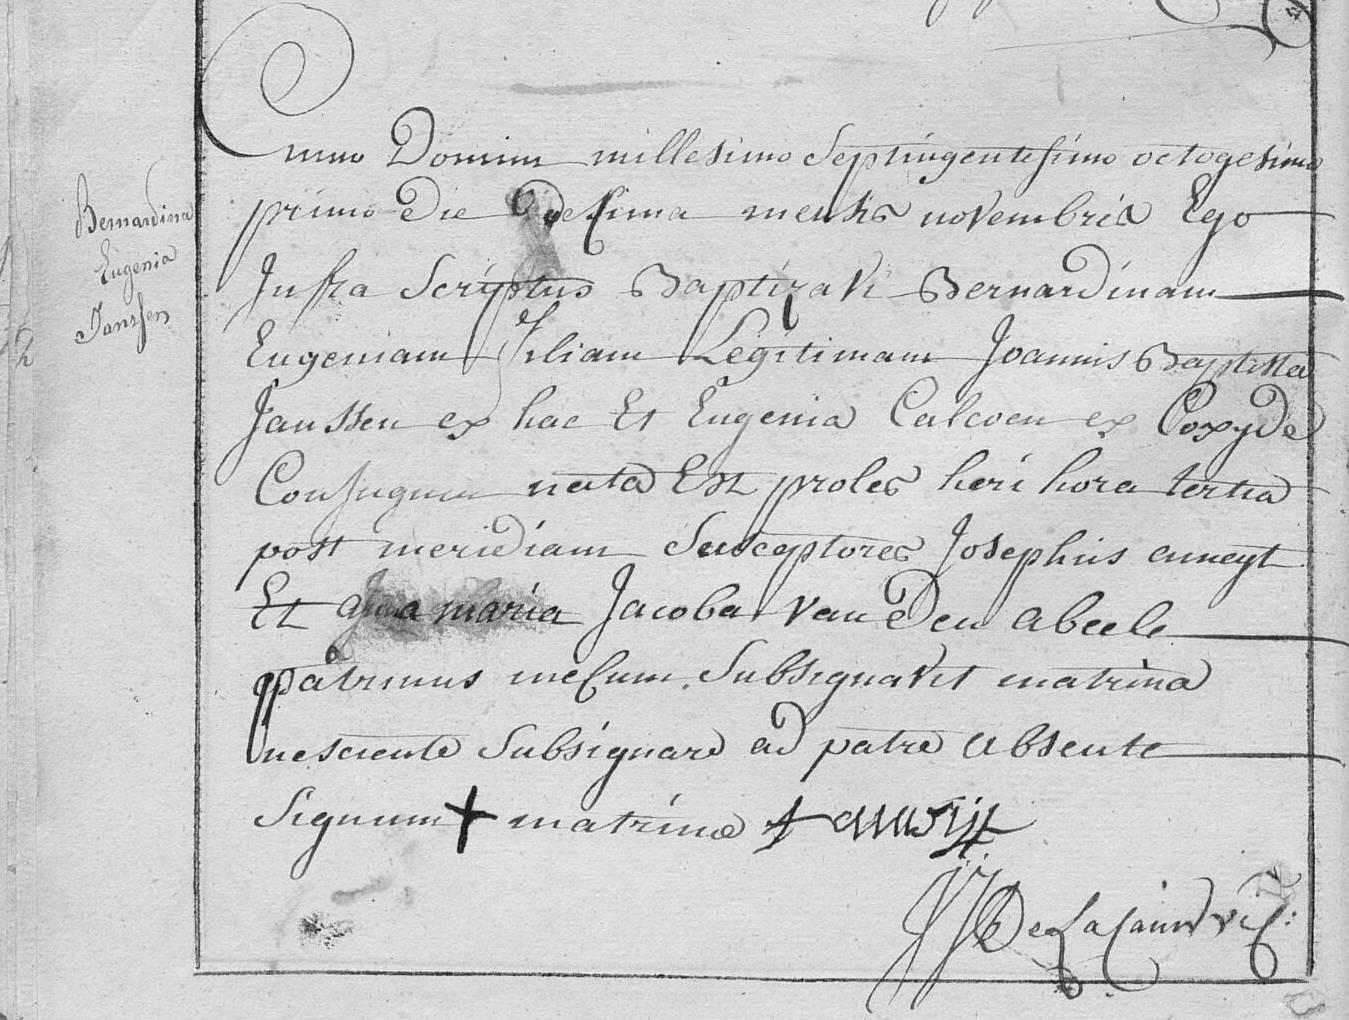 Bernardina
Eugenia
Janssen
Anno Domini millesimo Septingentesimo octogesimo
primo die decima mensis novembris Ego
Infra Scriptus Baptizavi Bernardinam
Eugeniam filiam Legitimam Joannis Baptista
Janssen ex hac Et Eugenia Calcoen ex Coxyde
Conjugum nata Est proles heri hora tertia
post meridiam Susceptores Josephus anneyt
Et anna maria Jacoba vanden abeele
patrinus mecum Subsignavit matrina
nesciente Subsignare ad patre absente
Signum + matrinæ
De La